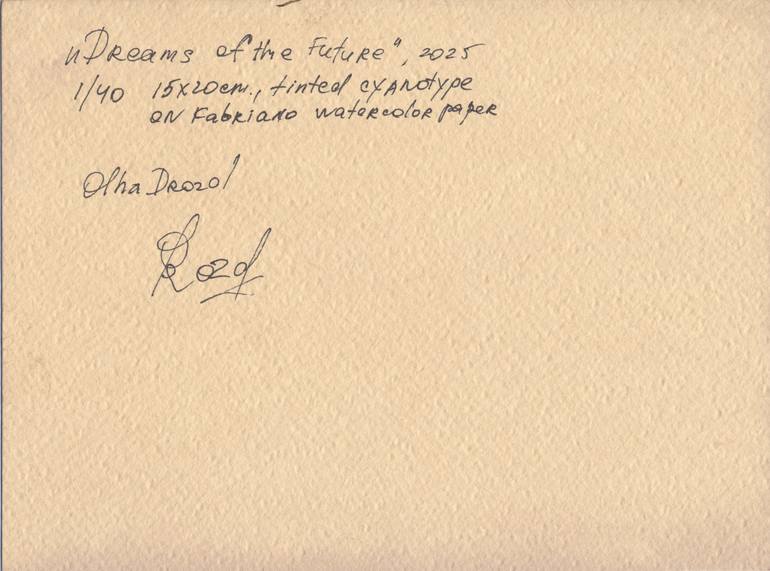 „Dreams of the Future", 2025
1/40 15x20cm., tinted cyanotype
on Fabriano watercolor paper
Olha Drozd
Drozd